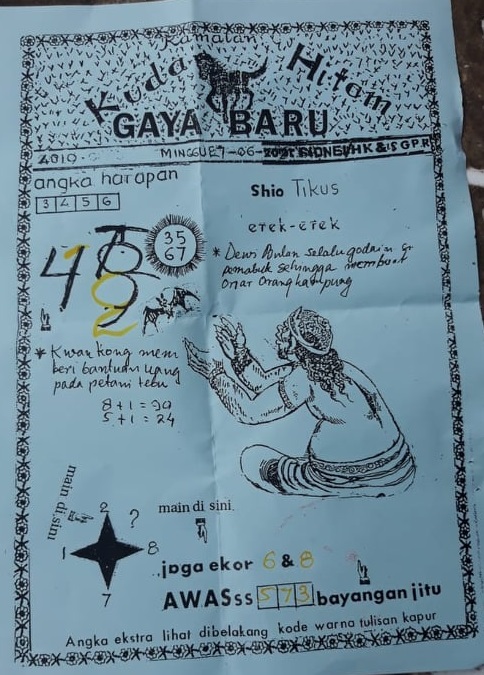 Ramalan
Kuda Hitam
GAYA BARU
4019
MINGGU E7-06-
SIDNEY HK & SGPR
angka harapan
3 4 5 6
Shio Tikus
erek-erek
35
67
* Dewi Bulan selalu godain
pemabuk sehingga membuat
onar orang kampung
* Kwan kong mem
beri bantuan uang
pada petani tebu
8+1=90
5+1=24
main disini
2
?
1
8
7
main di sini.
jaga ekor 6 & 8
AWASss 573 bayangan jitu
Angka ekstra lihat dibelakang kode warna tulisan kapur